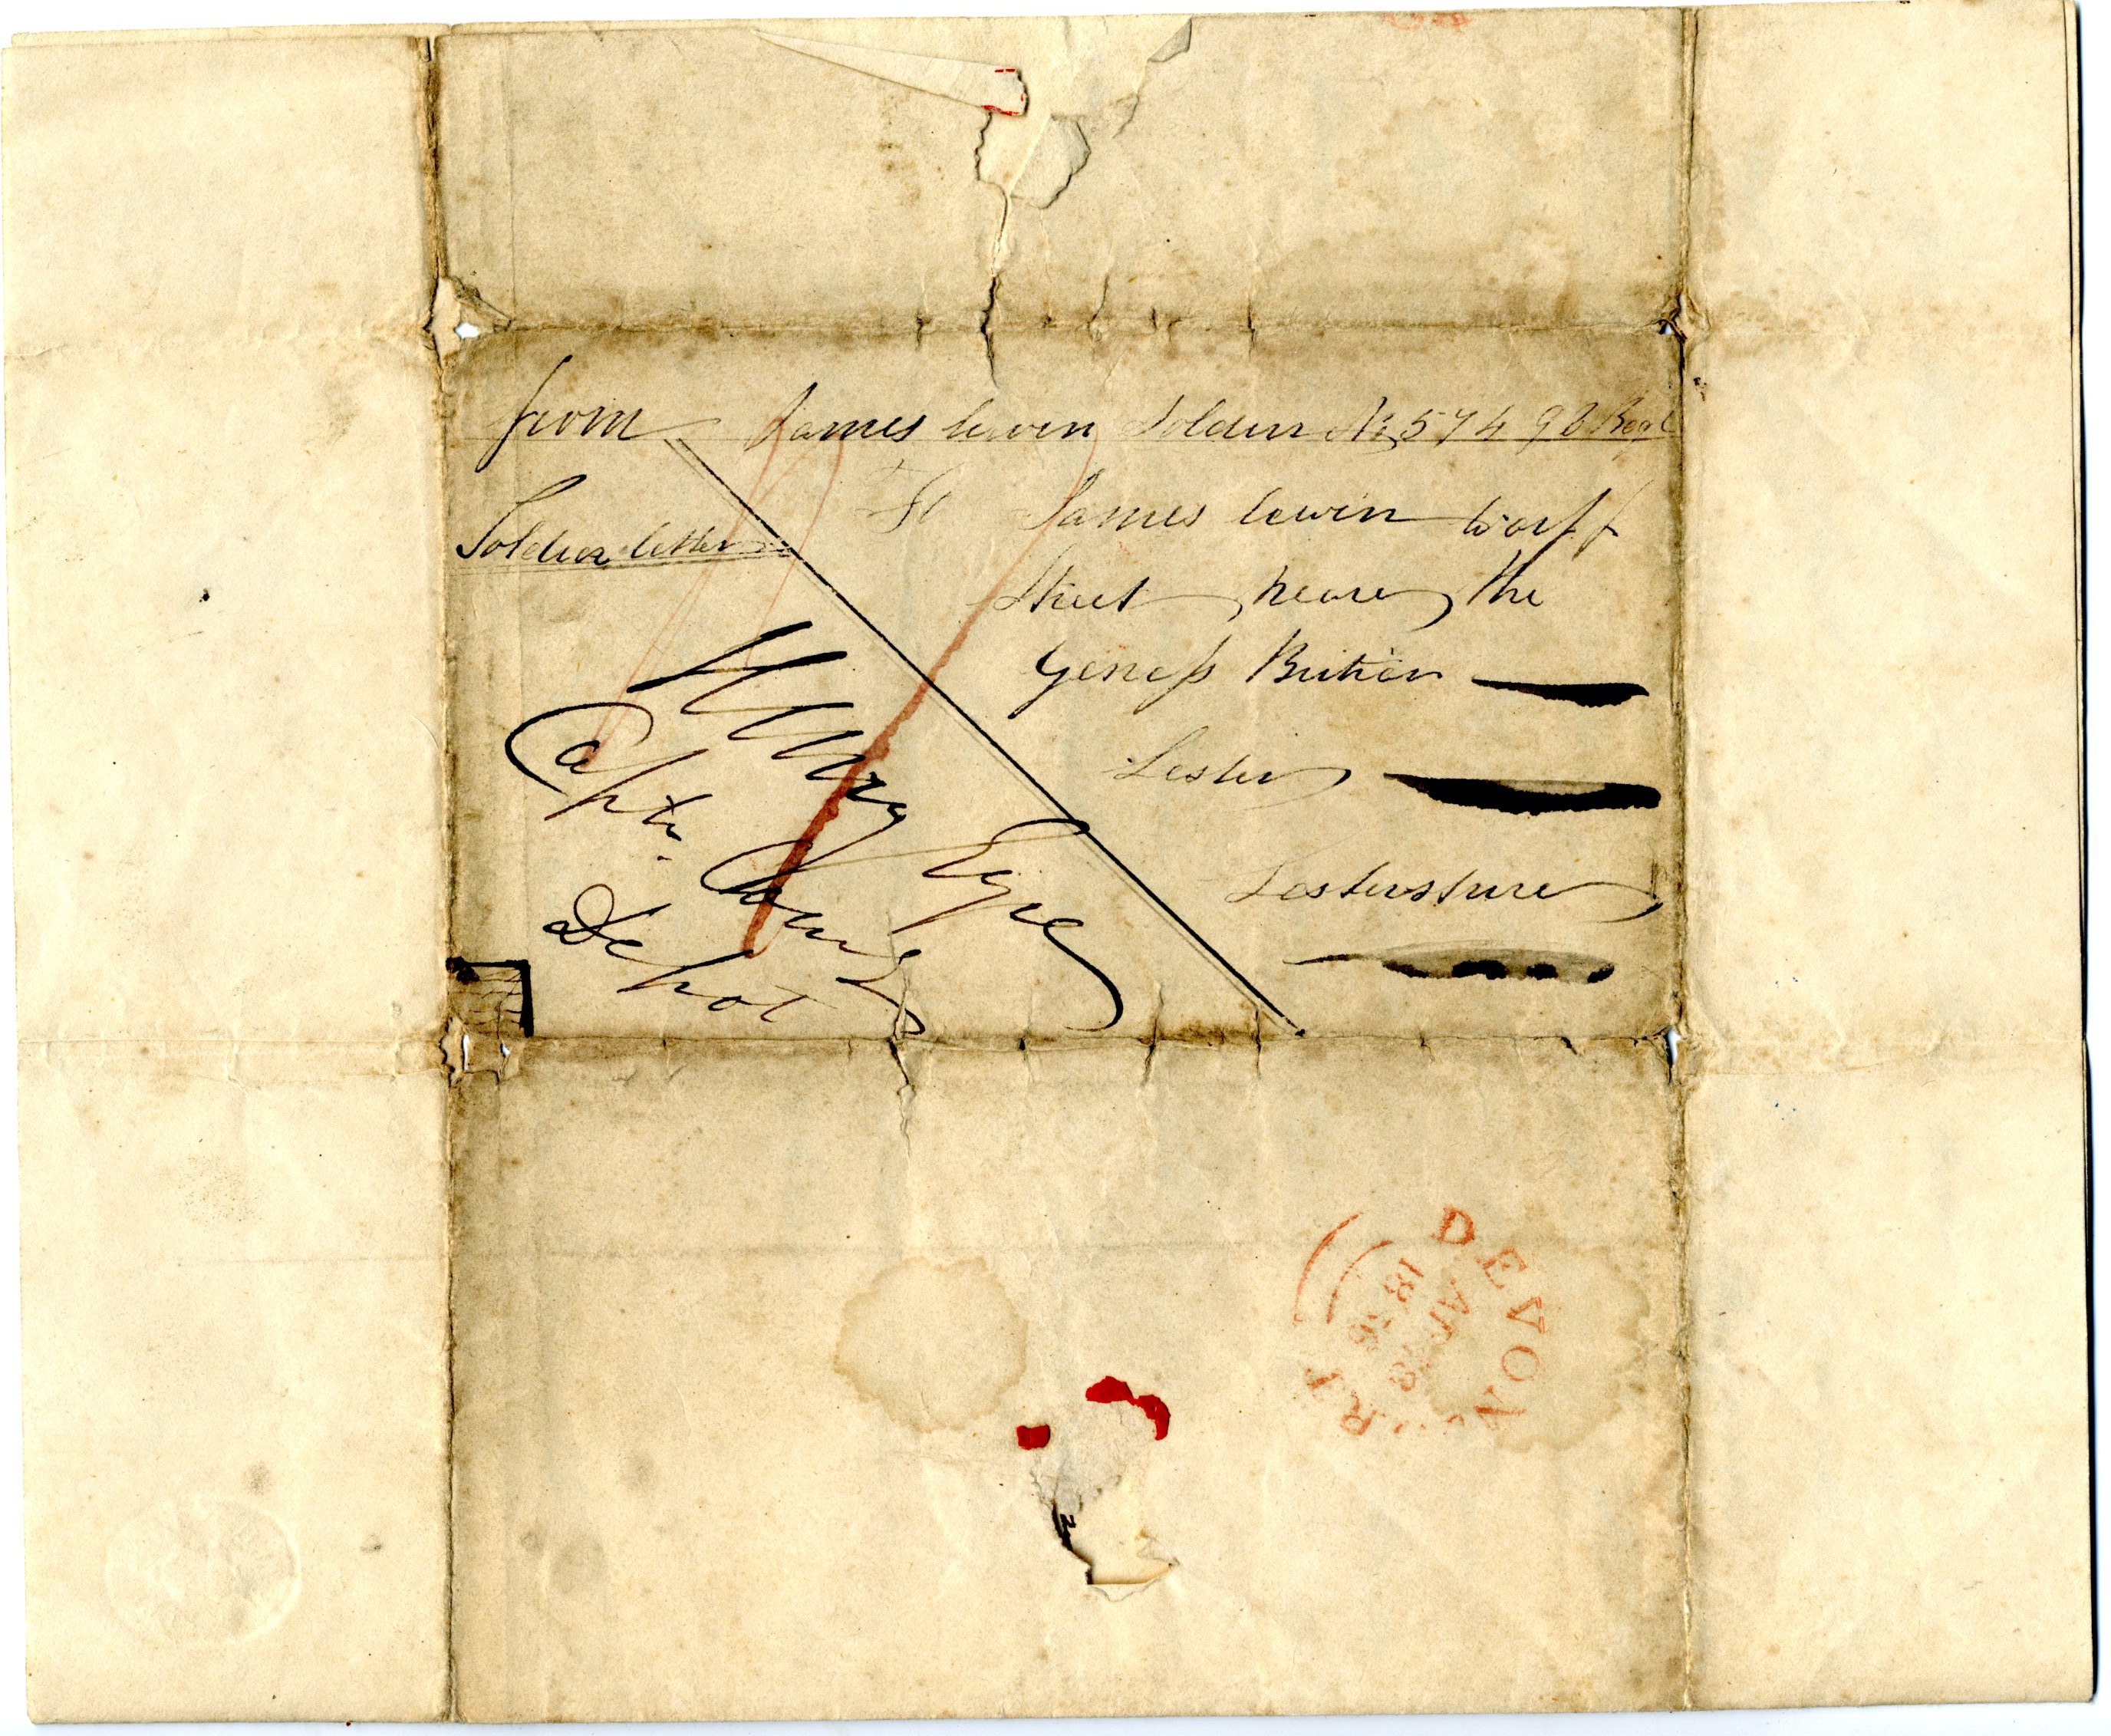 from James lewin Soldier No 574 98 Regt
Soldier letter
To James lewin worff
Street neare the
Geness Buttion
Lester
Lestersture
Henry Eyre
Captn. Comg
Depot
DEVON
JA
18